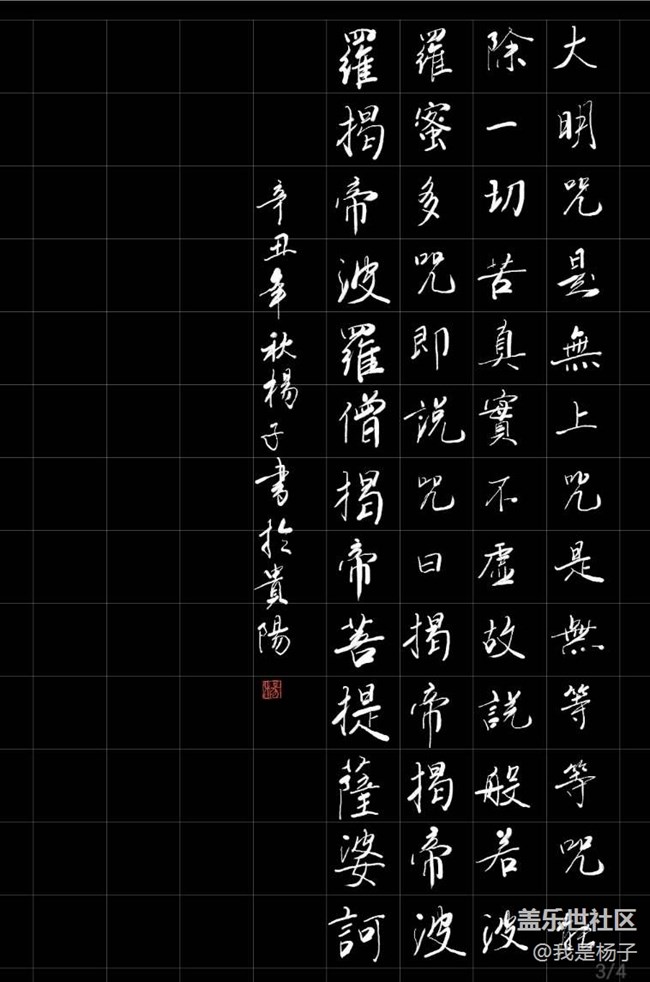 大明咒是無上咒是無等等咒能
除一切苦真實不虛故說般若波
羅蜜多咒即說咒曰揭帝揭帝波
羅揭帝波羅僧揭帝菩提薩婆訶
辛丑年秋楊子書於貴陽
盖乐世社区
@我是杨子
3/4